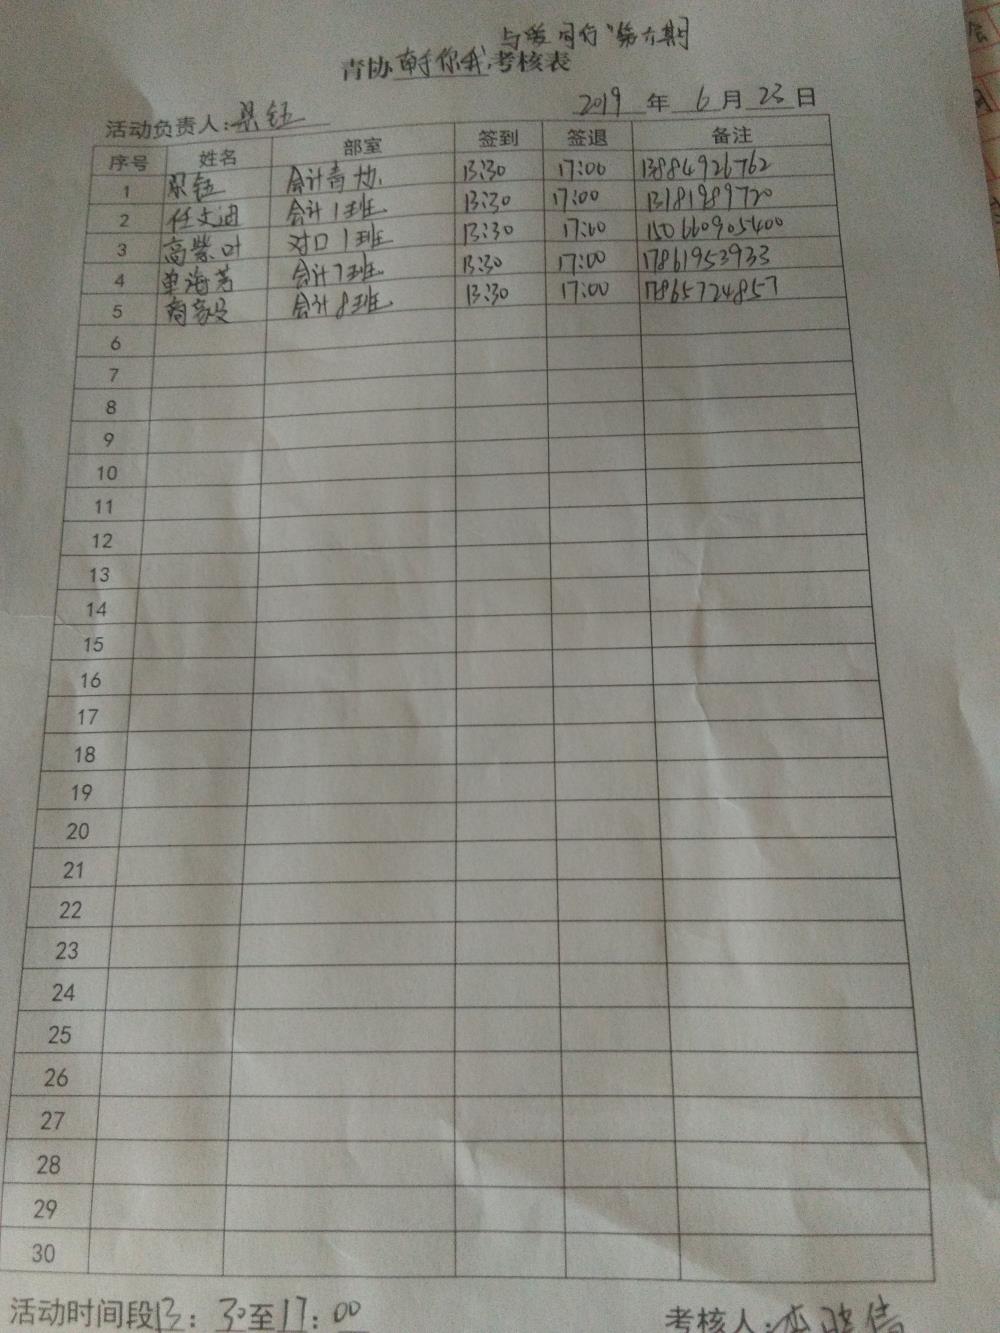 与爱同行"第六期
青协牵手你我考核表
2019 年 6 月 23 日
活动负责人:
序号 姓名 部室 签到 签退 备注
1 会计青协 13:30 17:00 13884926762
2 任文迪 会计1班 13:30 17:00 13181989720
3 高紫叶 对口1班 13:30 17:00 150660905400
4 单海芳 会计7班 13:30 17:00 17861953933
5 会计8班 13:30 17:00 17865724857
6
7
8
9
10
11
12
13
14
15
16
17
18
19
20
21
22
23
24
25
26
27
28
29
30
活动时间段13:30至17:00 考核人: